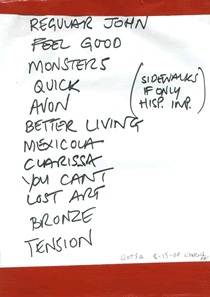 REGULAR JOHN
FEEL GOOD
MONSTERS
QUICK
AVON
BETTER LIVING
MEXICOLA
CLARISSA
YOU CANT
LOST ART
BRONZE
TENSION
(SIDEWALKS
IF ONLY
HISP. IMP.)
QOTSA 8-15-00